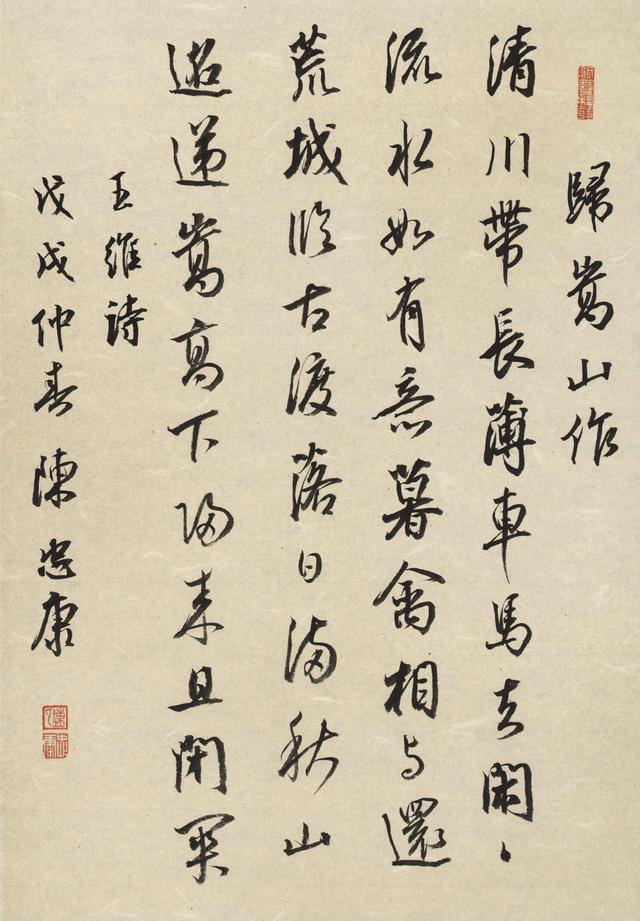 歸嵩山作
清川帶長薄車馬去閑〻
流水如有意暮禽相与還
荒城臨古渡落日滿秋山
迢遞嵩高下歸来且閉関
王維詩
戊戌仲春陳忠康